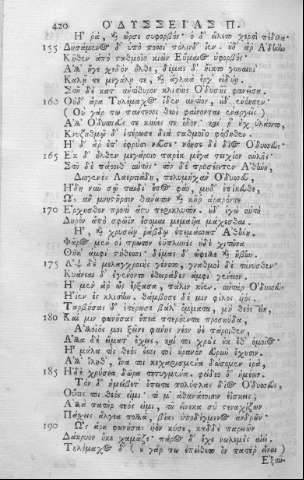 420 ὈΔΥΣΣΕΙΑΣ Π.
Ἦ ῥα, καὶ ὦρσε συφορβόν· ὁ δ' εἵλετο χερσὶ πέδιλα·
155 Δησάμενος δ' ὑπὸ ποσσὶ πόλινδ' ἴεν. οὐδ' ἄρ' Ἀθήνην
Λῆθεν ἀπὸ σταθμοῖο κιὼν Εὔμαιος ὑφορβός·
Ἀλλ' ἥγε σχεδὸν ἦλθε, δέμας δ' ἤϊκτο γυναικὶ
Καλῇ τε μεγάλῃ τε, καὶ ἀγλαὰ ἔργ' εἰδυίῃ.
Στῆ δὲ κατ' ἀντίθυρον κλισίης Ὀδυσῆϊ φανεῖσα.
160 Οὐδ' ἄρα Τηλέμαχος ἴδεν ἀντίον, οὐδ' ἐνόησεν·
(Οὐ γάρ πω πάντεσσι θεοὶ φαίνονται ἐναργεῖς)
Ἀλλ' Ὀδυσεύς τε κύνες τε ἴδον, καί ῥ' οὐχ ὑλάοντο,
Κνυζηθμῷ δ' ἑτέρωσε διὰ σταθμοῖο φόβηθεν.
Ἡ δ' ἄρ' ἐπ' ὀφρύσι νεῦσε· νόησε δὲ δῖος Ὀδυσσεύς·
165 Ἐκ δ' ἦλθεν μεγάροιο παρὲκ μέγα τειχίον αὐλῆς·
Στῆ δὲ πάροιθ' αὐτῆς· τὸν δὲ προσέειπεν Ἀθήνη,
Διογενὲς Λαερτιάδη, πολυμήχαν' Ὀδυσσεῦ
Ἤδη νῦν σῷ παιδὶ ἔπος φάο, μηδ' ἐπίκευθε,
Ὡς ἂν μνηστῆρσιν θάνατον καὶ κῆρ' ἀραρόντε
170 Ἔρχησθον προτὶ ἄστυ περικλυτόν. οὐδ' ἐγὼ αὐτὴ
Δηρὸν ἀπὸ σφῶϊν ἔσομαι μεμαυῖα μάχεσθαι.
Ἦ, καὶ χρυσείῃ ῥάβδῳ ἐπεμάσσατ' Ἀθήνη.
Φᾶρος μέν οἱ πρῶτον ἐϋπλυνὲς ἠδὲ χιτῶνα
Θῆκ' ἀμφὶ στήθεσσι· δέμας δ' ὤφελλε καὶ ἥβην.
175 Ἂψ δὲ μελαγχροιὴς γένετο, γναθμοὶ δὲ τάνυσθεν·
Κυάνεαι δ' ἐγένοντο ἐθειράδες ἀμφὶ γένειον.
Ἡ μὲν ἄρ' ὣς ἔρξασα, πάλιν κίεν. αὐτὰρ Ὀδυσσεὺς
Ἤϊεν ἐς κλισίην. θάμβησε δέ μιν φίλος υἱός·
Ταρβήσας δ' ἑτέρωσε βάλ' ὄμματα, μὴ θεὸς εἴη,
180 Καί μιν φωνήσας ἔπεα πτερόεντα προσηύδα,
Ἀλλοῖός μοι ξεῖνε φάνης νέον ἠὲ πάροιθεν,
Ἄλλα δὲ εἵματ' ἔχεις, καί τοι χρὼς οὐκ ἔθ' ὁμοῖος·
Ἦ μάλα τις θεός ἐσσι τοὶ οὐρανὸν εὐρὺν ἔχουσιν.
Ἀλλ' ἵληθ', ἵνα τοι κεχαρισμένα δώομεν ἱρὰ,
185 Ἠδὲ χρύσεα δῶρα τετυγμένα· φείδεο δ' ἡμέων.
Τὸν δ' ἠμείβετ' ἔπειτα πολύτλας δῖος Ὀδυσσεύς,
Οὔτις τοι θεός εἰμι· τί μ' ἀθανάτοισιν ἐΐσκεις;
Ἀλλὰ πατὴρ τεός εἰμι, τοῦ εἵνεκα σὺ στεναχίζων
Πάσχεις ἄλγεα πολλὰ, βίας ὑποδέγμενος ἀνδρῶν·
190 Ὣς ἄρα φωνήσας υἱὸν κύσε, καδδὲ παρειῶν
Δάκρυον ἧκε χαμᾶζε· πάρος δ' ἔχε νωλεμὲς αἰεί.
Τηλέμαχος δ' (οὐ γάρ πω ἐπείθετο ὃν πατέρ' εἶναι)
Ἐξαῦ-